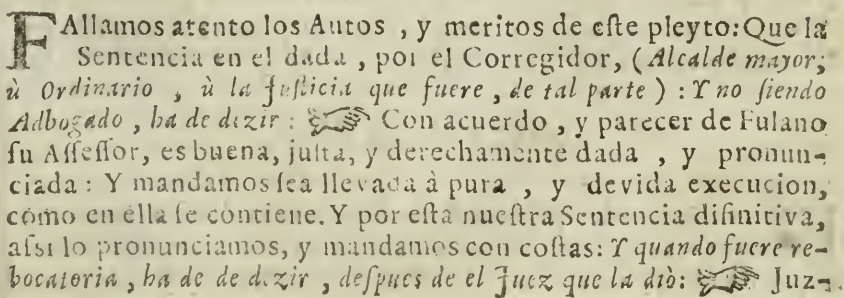 FAllamos atento los Autos , y meritos de eſte pleyto: Que la
Sentencia en el dada , por el Corregidor, (Alcalde mayor,
ù Ordinario , ù la Juſticia que fuere , de tal parte ) : Y no ſiendo
Adbogado , ha de dezir : ☞ Con acuerdo , y parecer de Fulano
ſu Aſſeſſor, es buena, juſta, y derechamente dada , y pronun-
ciada : Y mandamos ſea llevada à pura , y devida execucion,
como en élla ſe contiene. Y por eſta nueſtra Sentencia difinitiva,
aſsi lo pronunciamos, y mandamos con coſtas: Y quando fuere re-
bocatoria , ha de de dezir , deſpues de el Juez que la diò: ☞ Juz-